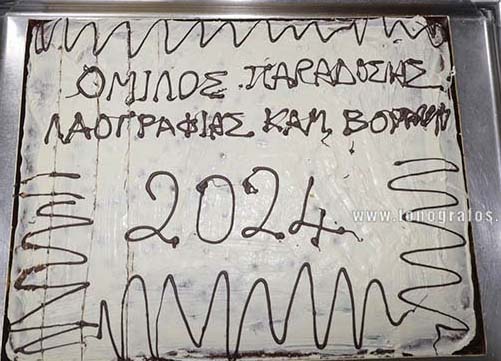 ΟΜΙΛΟΣ ΠΑΡΑΔΟΣΗΣ
ΛΑΟΓΡΑΦΙΑΣ ΚΑΜ. ΒΟΥΡΛΩΝ
2024
www.tonografos.